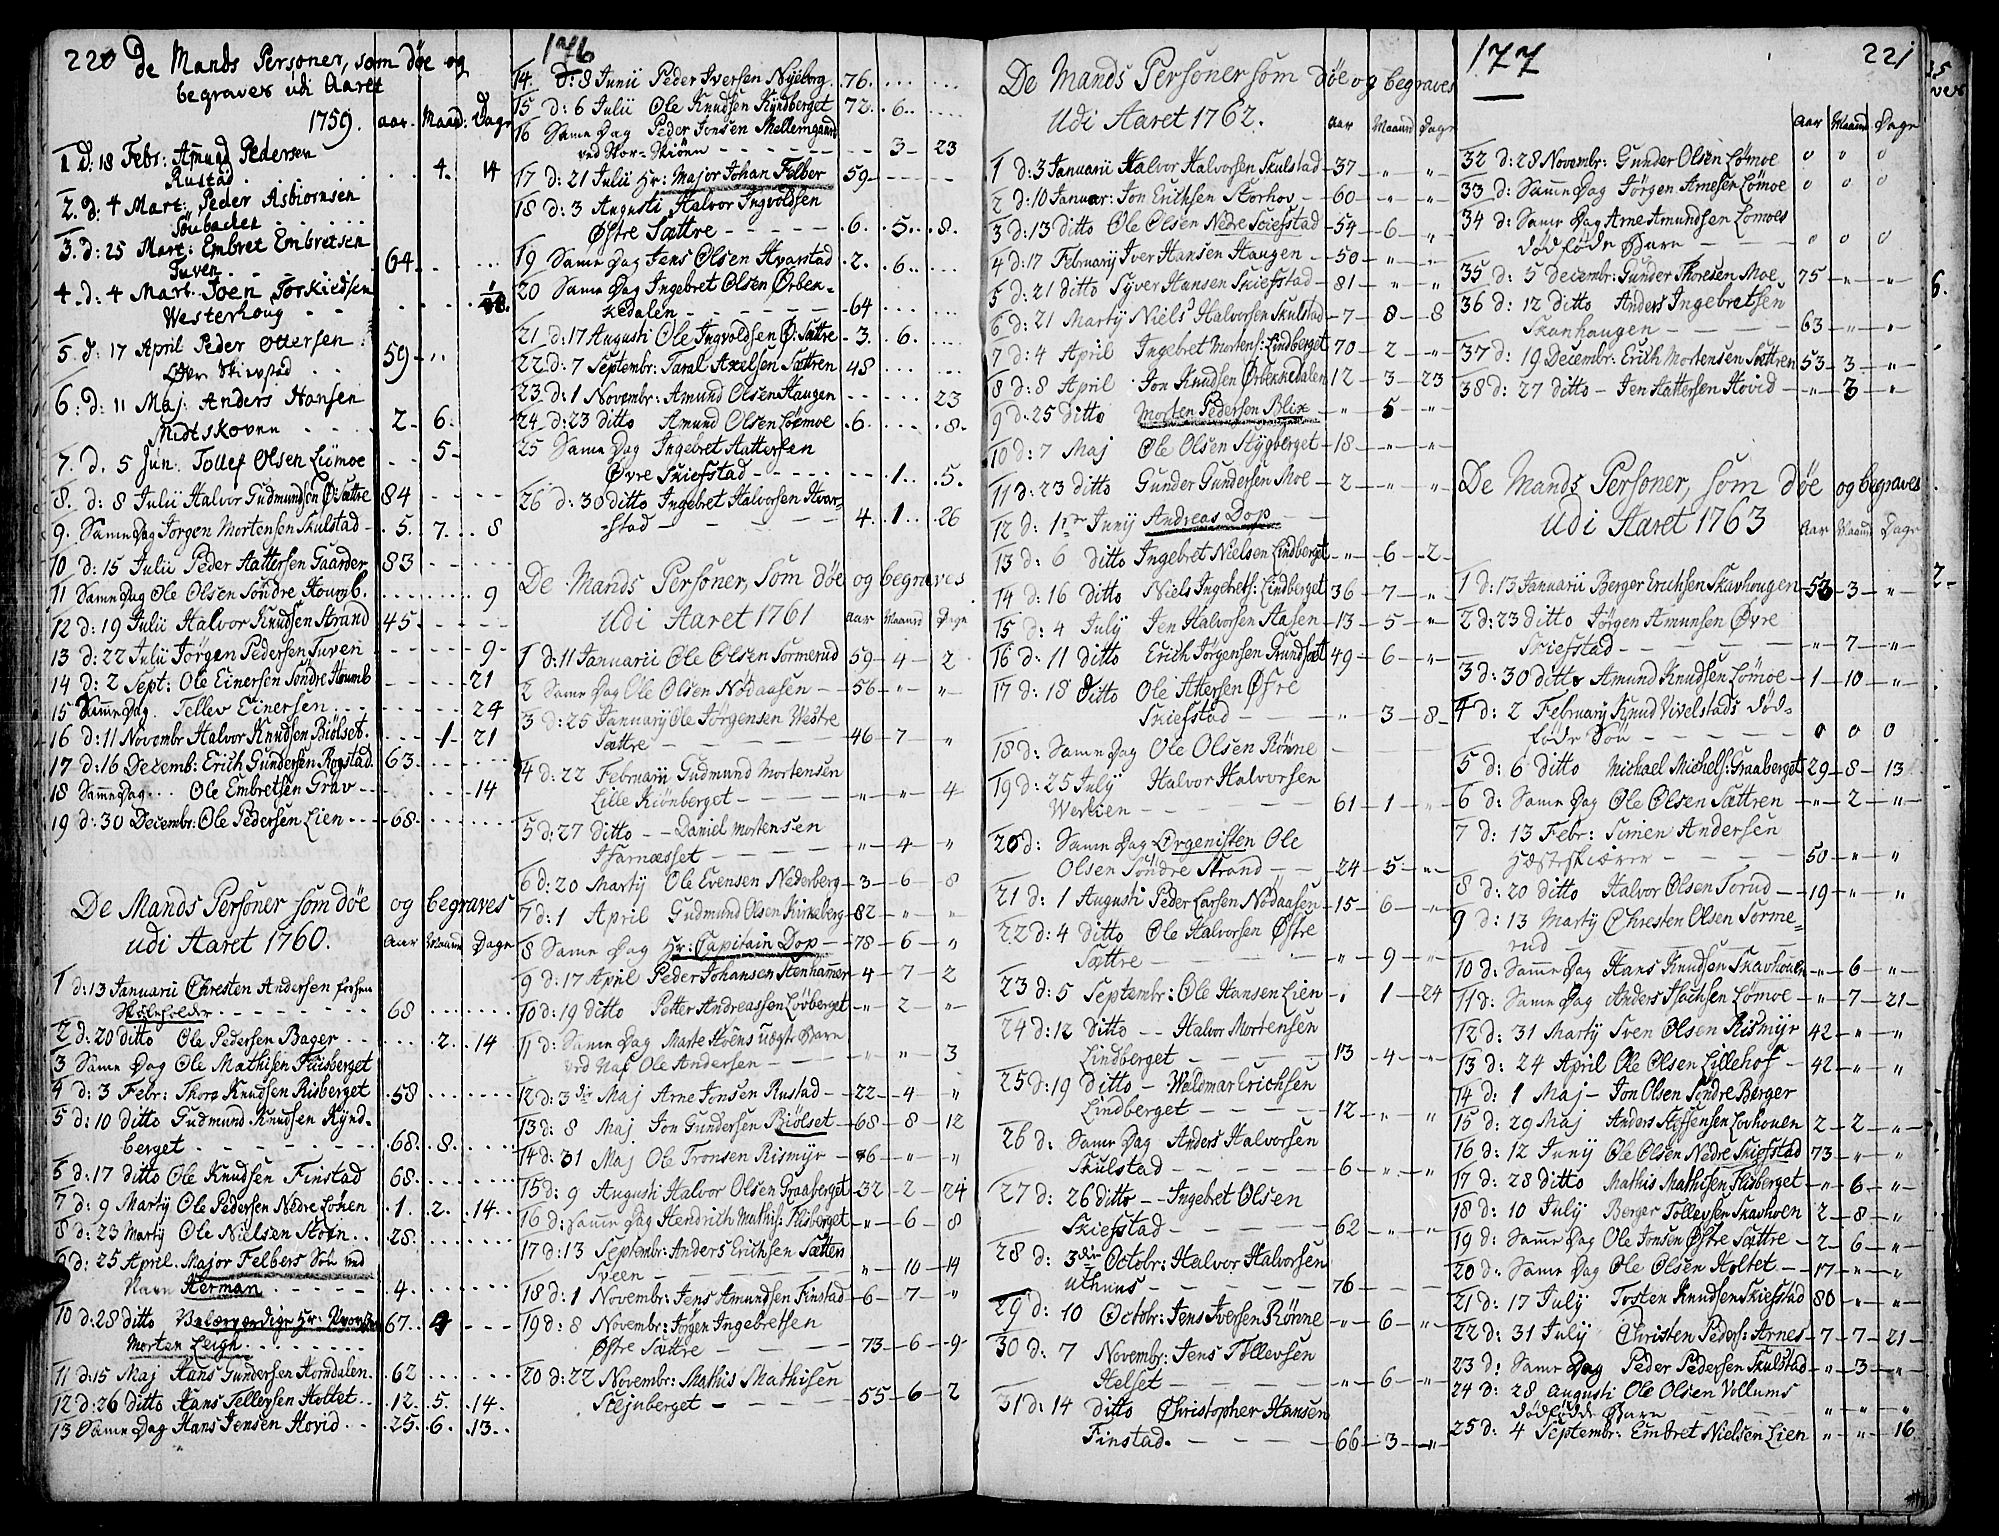 220
De Mands Personer, som døe og
begraves udi Aaret
1759. aar. Maad: Dage
1 d: 18 Febr: Amund Pedersen
Rustad . . . 4. 14
2. d: 4 Mart: Peder Asbiørnsen
Søubacken
3. d: 25 Mart: Embret Embretsen
Tuven 64
4. d: 4 Mart. Joen Torkieldsen
Westerhoug
5. d: 17 April Peder Ottersen
Øvr Skiefstad 59
6. d: 11 Maj. Anders Hansen
Midtskoven 2. 6.
7. d. 5 Jun. Tollef Olsen Lømoe 5
8. d: 8 Julii Halvor Gudmundsen Ø: Sættre 84
9. Samme Dag Jørgen Mortensen Skulstad 5. 7. 8
10 d: 15 Julii Peder Hattersen Gaarder 83
11 Samme Dag Ole Olsen Søndre Houmb. 9
12 d: 19 Julii Halvor Knudsen Strand 45
13 d: 22 Julii Jørgen Pedersen Tuven 9
14 d: 2 Sept: Ole Einersen Søndre Houmb 21
15 Samme Dag. Tellev Einersen 24
16 d: 11 Novembr Halvor Knudsen Biølset. 1 21
17 d: 16 Decemb: Erich Gundersen Rogstad 63
18 Samme Dag Ole Embretsen Grav 14
19 d: 30 Decembr: Ole Pedersen Lien 68
De Mands Personer som døe og begraves
udi Aaret 1760. Aar Maaned Dage
1 d: 13 Januarii Chresten Andersen
Skoleholder 68
2 d: 20 ditto Ole Pedersen Bager 2 14
3 Samme Dag Ole Mathisen Flisberget
4 d: 3 Febr: Thore Knudsen Risberget 58
5 d: 10 ditto Gudmund Knudsen Kynd-
berget 68 8
6 d: 17 ditto Ole Knudsen Finstad 68
7 d: 9 Martÿ Ole Pedersen Nedre Løken 1. 2. 14
8 d: 23 Martÿ Ole Nielsen Stoen 28
9 d: 25 April. Major Felbers Søn ved
Navn Herman 4
10 d: 28 ditto Velærværdige Hr:
Morten Leigh 67 4
11 d: 15 Maj Hans Gundersen Horndalen 62
12 d: 26 ditto Hans Tellefsen Holtet 12. 5. 14
13 Samme Dag Hans Jensen Hovid 25. 6. 13
176
14. d: 8 Junii Peder Iversen Nyeborg 76
15 d: 6 Julii Ole Knudsen Kyndberget 72. 6
16 Samme Dag Peder Jonsen Mellemgaard
ved Stor-Skiøen 3 23
17 d: 21 Julii Hr: Major Johan Felber 59
18 d: 3 Augusti Halvor Ingvoldsen
Østre Sættre 6. 5. 8
19 Samme Dag Jens Olsen Hvarstad 2. 6
20 Samme Dag Ingebret Olsen Ørbek-
kedalen 64
21 d: 17 Augusti Ole Ingvoldsen Ø: Sættre 3. 6
22 d: 7 Septembr: Taral Axelsen Sættren 48
23. d: 1 Novembr: Amund Olsen Haugen 23
24 d: 23 ditto Amund Olsen Lømoe 6. 8
25 Samme Dag Ingebret Hattersen
Øvre Skiefstad 1. 5
26 d: 30 ditto Ingebret Halvorsen Hvar-
stad 4. 1. 26
De Mands Personer, som døe og begraves
udi Aaret 1761 aar Maaned Dage
1 d: 11 Januarii Ole Olsen Sørmerud 59 4 2
2 Samme Dag Ole Olsen Nødaasen 56 " "
3 d: 25 Januarÿ Ole Jørgensen Westre
Sættre 46 7 "
4 d: 22 Februarii Gudmund Mortensen
Lille Kiønberget " " 4
5 d: 27 ditto Daniel Mortensen
Harnæsset " 4 "
6 d: 20 Martÿ Ole Evensen Nederberg 3 6 8
7 d: 1 April Gudmund Olsen Kirkeberg 82 " "
8 Samme Dag Hr: Capitain Dop 78 6 "
9 d: 17 April Peder Johansen Stenhammer 4 7 2
10 d: 19 ditto Petter Andreassen Løvberget " 2 "
11 d: Samme Dag Marte Hoens uægte Barn
ved Naf Ole Andersen " " 3
12 d: 3die Maj Arne Jonsen Rustad 22 4 "
13 d: 8 Maj Jon Gundersen Biølset 68 8 12
14 d: 31 Maj Ole Tronsen Rismyr 76 " "
15 d: 9 Augusti Halvor Olsen Graaberget 32 2 24
16 d: Samme Dag Hendrich Mathis: Flisberget " 6 8
17 d: 13 Septembr: Anders Erichsen Sætter
Sveen " 10 14
18 d: 1 Novembr: Jens Amundsen Finstad 6 7 "
19 d: 8 Novembr: Jørgen Ingebretsen
Østre Sættre 73 6 9
20 d: 22 Novembr: Mathis Mathisen
Seljuberget 55 6 2
De Mands Personer som døe og begraves
Udi Aaret 1762. Aar Maaned Dage
1 d: 3 Januarii Halvor Halvorsen Skulstad 37 " "
2 d: 10 Januar: Jon Erichsen Storhov 60 " "
3 d: 13 ditto Ole Olsen Nedre Skiefstad 54 6 "
4 d: 17 Februarÿ Iver Hansen Haugen 50 " "
5 d: 21 ditto Syver Hansen Skiefstad 81 " "
6 d: 21 Martÿ Niels Halvorsen Skulstad 7 8 8
7 d: 4 April Ingebret Mortens: Lindberget 70 2 "
8 d: 8 April Jon Knudsen Ørbekkedalen 12 3 23
9 d: 25 ditto Morten Pedersen Blix " 5 "
10 d: 7 Maj Ole Olsen Stygberget 18 " "
11 d: 23 ditto Gunder Gundersen Moe 2 " "
12 d: 1te Junÿ Andreas Dop
13 d: 6 ditto Ingebret Nielsen Lindberget " 6 2
14 d: 16 ditto Niels Ingebrets: Lindberget 36 7 "
15 d: 4 Julÿ Jen Halvorsen Aasen 13 5 "
16 d: 11 ditto Erich Jørgensen Grundsæt 49 6 "
17 d: 18 Ditto Ole Attersen Øfre
Skiefstad " 3 8
18 d: Samme Dag Ole Olsen Rønne
19 d: 25 Julÿ Halvor Halvorsen
Werkien 61 1 "
20 d: Samme Dag Orgenisten Ole
Olsen Søndre Strand 24 5 "
21 d: 1 Augusti Peder Larsen Nødaasen 15 6 "
22 d: 4 ditto Ole Halvorsen Østre
Sættre " 9 "
23 d: 5 Septembr: Ole Hansen Lien " 1 24
24 d: 12 ditto Halvor Mortensen
Lindberget 13 4 "
25 d: 19 ditto Waldmar Erichsen
Lindberget 12 " "
26 d: Samme Dag Anders Halvorsen
Skulstad 6 " "
27 d: 26 ditto Ingebret Olsen
Skiefstad 62 " "
28 d: 3die Octobr: Halvor Halvorsen
uthuus 76
29 d: 10 Octobr: Jens Iversen Rønne " 6 "
30 d: 7 Novembr: Jens Tollevsen
Helset " 6 "
31 d: 14 ditto Christopher Hansen
Finstad. 66 3 "
177
221
Aar Maaned Dage
32 d: 28 Novembr: Gunder Olsen Lømoe 0 0 0
33 d: Samme Dag Jørgen Arnesen Lømoe 0 0 0
34 d: Samme Dag Arne Amundsen Lømoes
dødføde Barn 0 0 0
35 d: 5 Decembr: Gunder Thoresen Moe 75 " "
36 d: 12 Ditto Anders Ingebretsen
Skanhaugen 63 " "
37 d: 19 Decembr: Erich Mortensen Sættren 53 3 "
38 d: 27 ditto Jen Hattersen Hovid " 3 "
De Mands Personer, som døe og begraves
udi Aaret 1763 Aar Maaned Dage
1 d: 13 Januarii Berger Erichsen Skavhougen 53 3 "
2 d: 23 ditto Jørgen Amunsen Øvre
Skiefstad " 7 "
3 d: 30 ditto Amund Knudsen Lømoe 1 10 "
4 d: 2 Februarÿ Knud Vivelstads død-
føde Søn 0 0 0
5 d: 6 ditto Michael Michels: Graaberget 29 8 13
6 d: Samme Dag Ole Olsen Sættren " 2 "
7 d: 13 Febr: Simen Andersen
Hæsteskiærer 50 " "
8 d: 20 ditto Halvor Olsen Torud 19 " "
9 d: 13 Martÿ Chresten Olsen Sørme-
rud
10 d: Samme Dag Hans Knudsen Skavhouen " 6 "
11 d: Samme Dag Anders Isachsen Lømoe " 7 21
12 d: 31 Martÿ Sven Olsen Rismyr 42 " "
13 d: 24 April Ole Olsen Lillehof 42 " "
14 d: 1 Maj Jon Olsen Søndre Berger
15 d: 29 Maj Anders Steffensen Lovhouen 2 2 "
16 d: 12 Junÿ Ole Olsen Nedre Skiefstad 73 " "
17 d: 28 ditto Mathis Mathisen Flisberget " 6 "
18 d: 10 Julÿ Berger Tollevsen Skavhoen 2 8 "
19 d: Samme Dag Ole Jonsen Østre Sættre 2 6 "
20 d: Samme Dag Ole Olsen Holtet 17 " "
21 d: 17 Julÿ Tosten Knudsen Skiefstad 80 " "
22 d: 31 Julÿ Christen Peders: Arnes 7 7 21
23 d: Samme Dag Peder Pedersen Skulstad " 3 "
24 d: 28 Augusti Ole Olsen Vollums
dødfødde Barn " " "
25 d: 4 Septembr: Embret Nielsen Lien " " 16